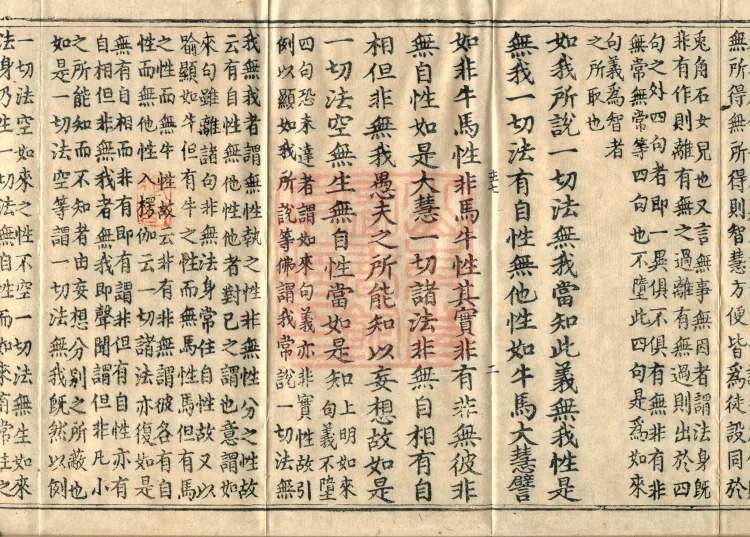 無所得無所得則智慧方便皆爲徒設同於
兎角石女兒也又言無事無因者謂法身既
非有作則離有無之過離有無過則出於四
句之外四句者即一異俱不俱有無非有非
無常無常等四句也不墮此四句是爲如來
句義爲智者
之所取也
如我所說一切法無我當知此義無我性是
無我一切法有自性無他性如牛馬大慧譬
二
如非牛馬性非馬牛性其實非有非無彼非
無自性如是大慧一切諸法非無自相有自
相但非無我愚夫之所能知以妄想故如是
一切法空無生無自性當如是知
上明如來
句義不墮
四句恐未達者謂如來句義亦非實性故引
例以顯如我所說等佛謂我常說一切法無
我無我者謂無性執之性非無性分之性故
云有自性無他性他者對己之謂也意謂如
來句雖離諸句非無法身常住自性故又以
喻顯如牛但有牛之性而無馬性馬但有馬
之性而無牛性故云非有非無謂彼各有自
性而無他性入楞伽云一切諸法亦復如是
無有自相而非有即有謂非但有自性亦有
自相但非無我者無我即聲聞謂但非凡小
之所能知而不知者由妄想分别之所蔽也
如是一切法空等謂一切法無我既然以例
一切法空如來之性不空一切法無生如來
法身乃生一切法無自性而如來有常住之